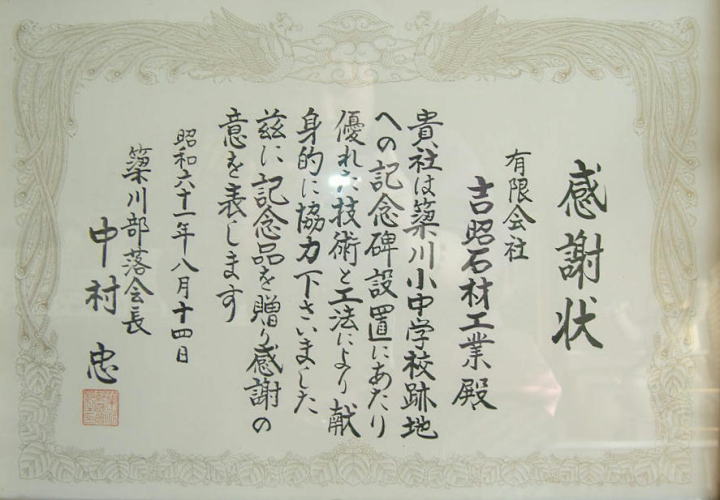 感謝状
有限会社
吉昭石材工業殿
貴社は簗川小中学校跡地
への記念碑設置にあたり
優れた技術と工法により献
身的に協力下さいました
茲に記念品を贈り感謝の
意を表します
昭和六十一年八月十四日
簗川部落会長
中村忠